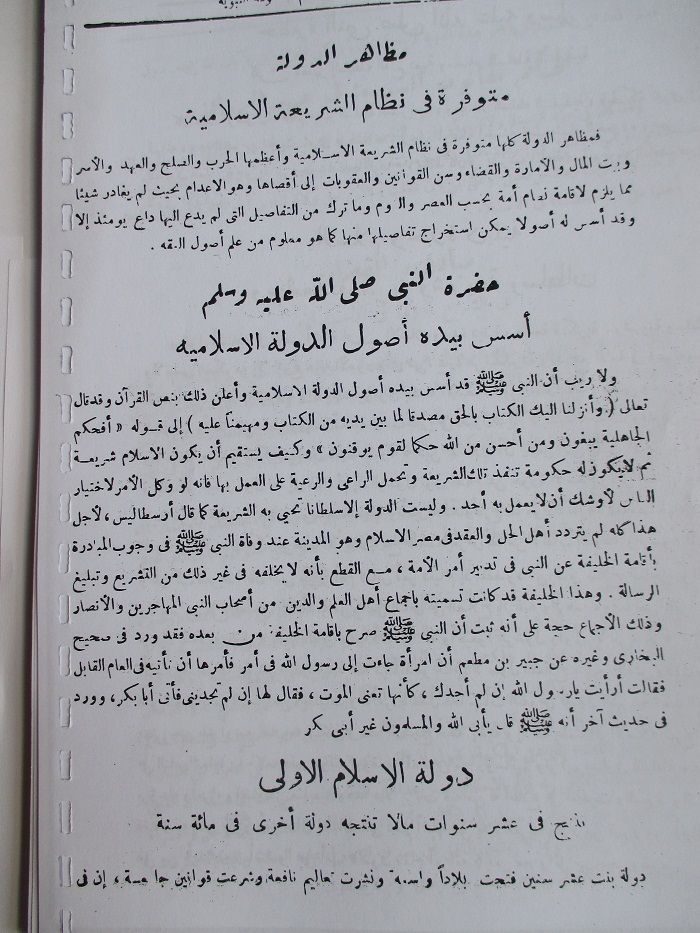 مظاهر الدولة
متوفرة فى نظام الشريعة الاسلامية
فمظاهر الدولة كلها متوفرة فى نظام الشريعة الاسلامية وأعظمها الحرب والصلح والعهد والأسر
وبيت المال والامارة والقضاء وسن القوانين والعقوبات إلى أقصاها وهو الاعدام بحيث لم يغادر شيئا
مما يلزم لاقامة نظام أمة بحسب العصر واليوم وما ترك من التفاصيل التى لم يدع اليها داع يومئذ إلا
وقد أسس له أصولا يمكن استخراج تفاصيلها منها كما هو معلوم من علم أصول الفقه .
حضرة النبى صلى الله عليه وسلم
أسس بيده أصول الدولة الاسلاميه
ولا ريب أن النبى ﷺ قد أسس بيده أصول الدولة الاسلامية وأعلن ذلك بنص القرآن وقد قال
تعالى ( وأنزلنا اليك الكتاب بالحق مصدقا لما بين يديه من الكتاب ومهيمناً عليه ) إلى قوله « أفحكم
الجاهلية يبغون ومن أحسن من الله حكما لقوم يوقنون » وكيف يستقيم أن يكون الاسلام شريعة
ثم لا يكون له حكومة تنفذ تلك الشريعة وتحمل الراعى والرعية على العمل بها فانه لو وكل الأمر لاختيار
الناس لأوشك أن لا يعمل به أحد . وليست الدولة إلا سلطانا تحيى به الشريعة كما قال أرسطاليس ، لأجل
هذا كله لم يتردد أهل الحل والعقد فى مصر الاسلام وهو المدينة عند وفاة النبى ﷺ فى وجوب المبادرة
بأقامة الخليفة عن النبى فى تدبير أمر الأمة ، مع القطع بأنه لا يخلفه فى غير ذلك من التشريع وتبليغ
الرسالة . وهذا الخليفة قد كانت تسميته باجماع أهل العلم والدين من أصحاب النبى المهاجرين والأنصار
وذلك الأجماع حجة على أنه ثبت أن النبى ﷺ صرح باقامة الخليفة من بعده فقد ورد فى صحيح
البخارى وغيره عن جبير بن مطعم أن امرأة جاءت إلى رسول الله فى أمر فأمرها أن تأتيه فى العام القابل
فقالت أرأيت يا رسول الله إن لم أجدك ، كأنها تعنى الموت ، فقال لها إن لم تجدينى فأتى أبا بكر ، وورد
فى حديث آخر أنه ﷺ قال يأبى الله والمسلمون غير أبى بكر
دولة الاسلام الاولى
تنتج فى عشر سنوات مالا تنتجه دولة أخرى فى مائة سنة
دولة بنت عشر سنين فتحت بلاداً واسعة ونشرت تعاليم نافعة وشرعت قوانين جامعة ، إن فى